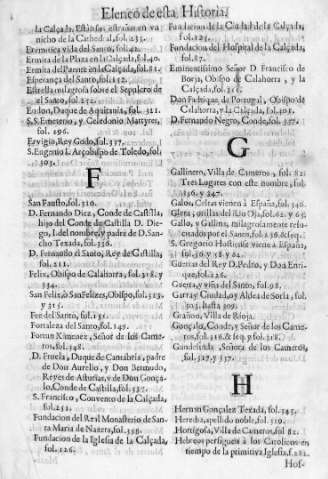 Elenco de esta Historia.
la Calçada, Estàn
nicho de la Cathedral, fol. 235.
Eremitica vida del Santo, fol. 42.
Ermita de la Plaza en la Calçada, fol. 40.
Ermita del Puente en la Calçada, fol. 81.
Esperança del Santo, fol. 152.
Estrella milagrosa sobre el Sepulcro de
el Santo, fol. 232.
Eudon, Duque de Aquitania, fol. 321.
S.S. Emeterio, y Celedonio Martyres,
fol. 296.
Ervigio, Rey Godo, fol. 337.
S. Eugenio I. Arçobispo de Toledo, fol.
303.
F
San Fausto, fol. 310.
D. Fernando Diez, Conde de Castilla,
hijo del Conde de Castilla D. Die-
go, I. del nombre, y padre de D. San-
cho Texada, fol. 336.
D. Fernando el Santo, Rey de Castilla,
fol. 211.
Felix, Obispo de Calahorra, fol. 318. y
334.
San Felix, ò San Felizes, Obispo, fol. 313.
y 315.
Fee del Santo, fol. 151.
Fortaleza del Santo, fol. 147.
Fortun Ximenez, Señor de los Came-
ros, fol. 348.
D. Fruela, Duque de Cantabria, padre
de Don Aurelio, y Don Bermudo,
Reyes de Asturias, y de Don Gonça-
lo, Conde de Castilla, fol. 337.
S. Francisco, Convento de la Calçada,
fol. 251.
Fundacion del Real Monasterio de San-
ta Maria de Naxera, fol. 358.
Fundacion de la Iglesia de la Calçada,
fol. 126.
Fundacion de la Ciudad de la Calçada,
fol. 125.
Fundacion del Hospital de la Calçada,
fol. 87.
Eminentissimo Señor D. Francisco de
Borja, Obispo de Calahorra, y la
Calçada, fol.
Don Fadrique de Portugal, Obispo de
Calahorra, y la Calçada, fol.
D. Fernando Negro, Conde, fol. 337.
G
Gallinero, Villa de Cameros, fol. 82.
Tres Lugares con este nombre, fol.
136. y 247.
Galos, Celtas vienen à España, fol. 340.
Glera, orillas del Rio Oja, fol. 62. y 63.
Gallo, y Gallina, milagrosamente resu-
citados por el Santo, fol. 216. & seq.
S. Gregorio Hostiense viene à España,
fol. 56. y 58. y 64.
Guerras del Rey D. Pedro, y Don Enri-
que, fol. 226.
Guerra, y viña del Santo, fol. 98.
Garray Ciudad, oy Aldea de Soria, fol.
303. hasta 309.
Grañon, Villa de Rioja.
Gonçalo, Conde, y Señor de los Came-
ros, fol. 316. & seq. y fol. 318.
Gaudiosinda, Señora de los Cameros,
fol. 327. y 337.
H
Hernan Gonçalez Texada, fol. 345.
Heredia, apellido noble, fol. 310.
Hortigosa, Villa de Cameros, fol. 82.
Hebreos persiguen à los Catolicos en
tiempo de la primitiva Iglesia, f. 282.
Hos-